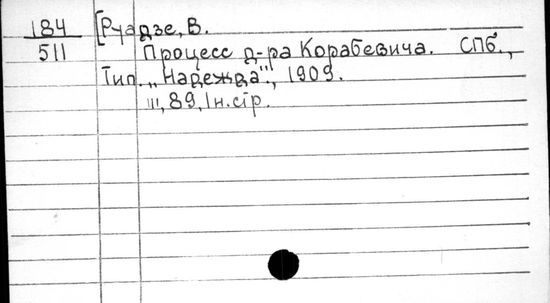 184 [Руадзе, В.
511 Процесс д-ра Корабевича. СПб.,
Тип. „Надежда", 1909.
III, 89, 1н.стр.